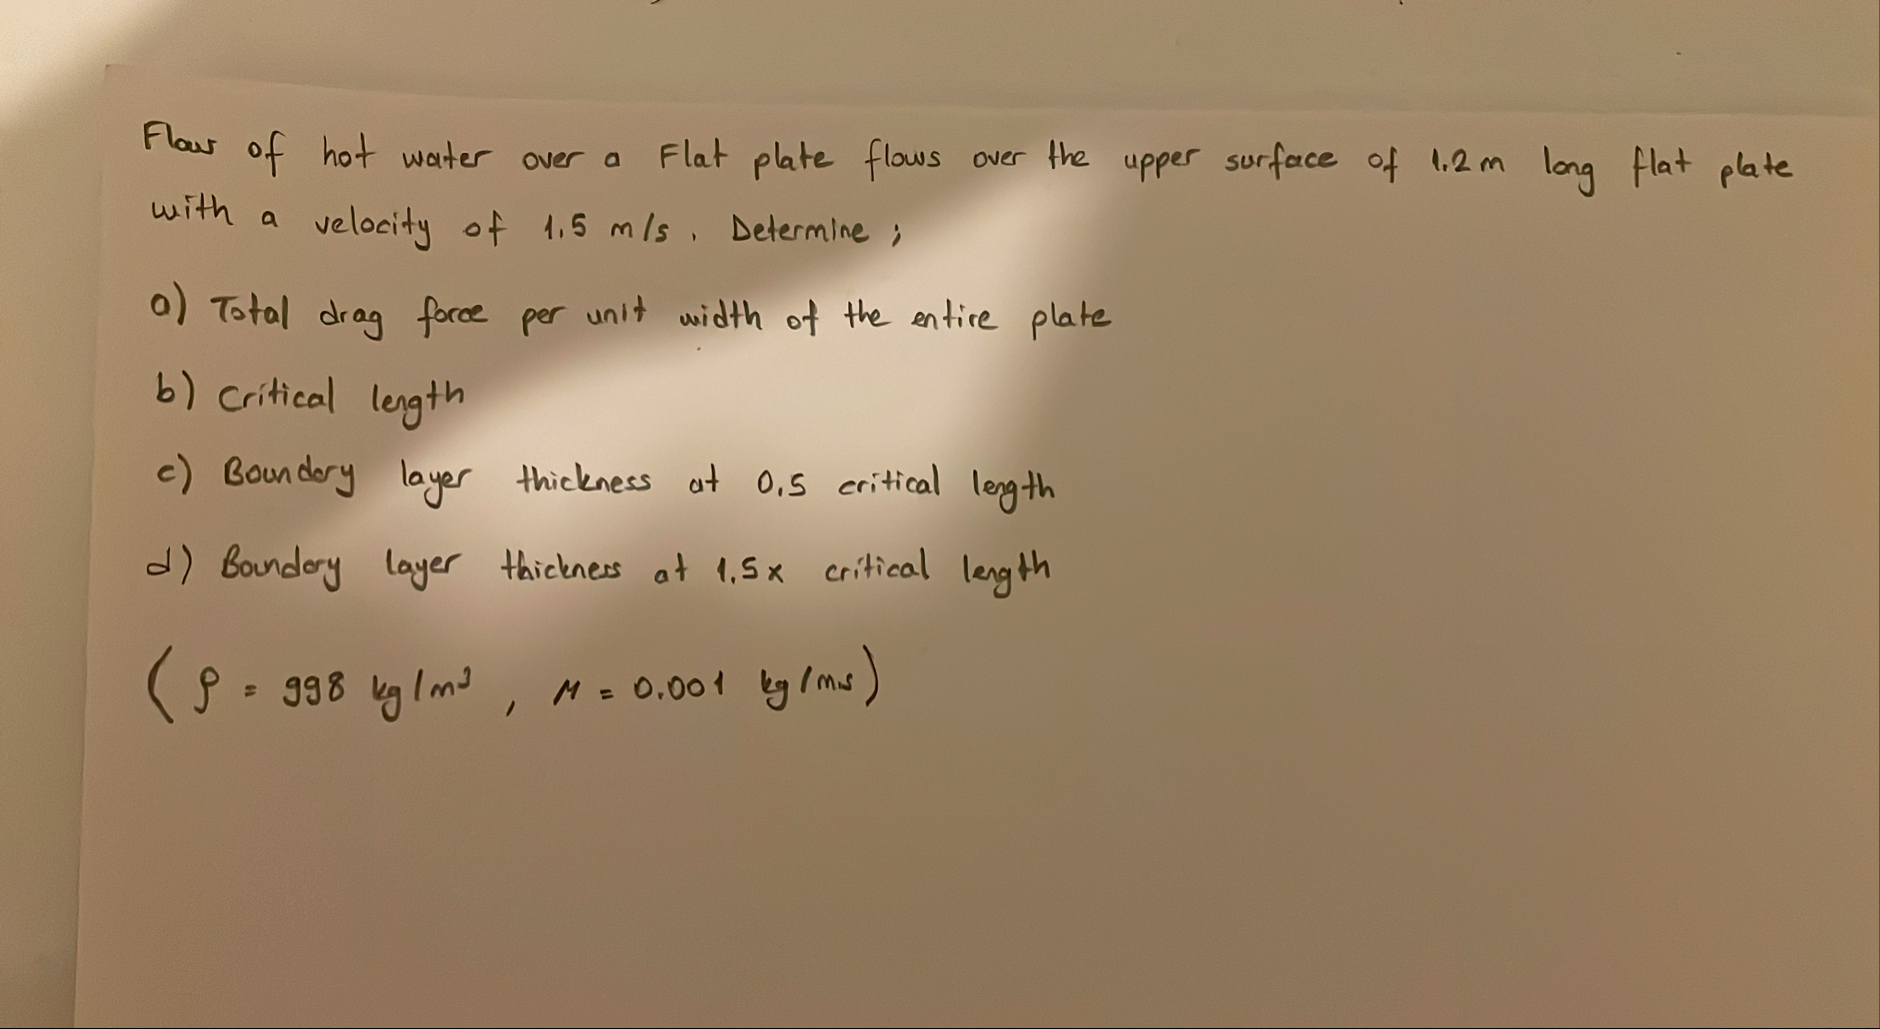 Flow of hot water over a Flat plate flows over the upper surface of 1.2 m long flat plate
with a velocity of 1.5 m/s. Determine ;
a) Total drag force per unit width of the entire plate
b) Critical length
c) Boundary layer thickness at 0.5 critical length
d) Boundary layer thickness at 1.5 x critical length
(ρ = 998 kg/m³, μ = 0.001 kg/m.s)